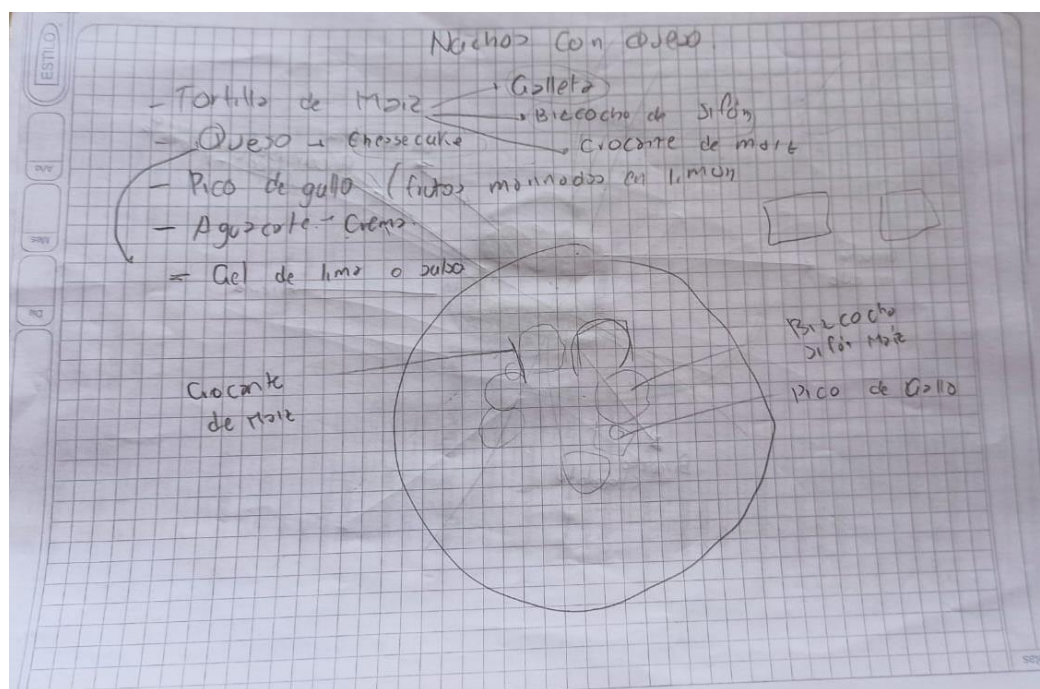 ESTILO
Nachos con queso
- Tortilla de Maiz
• Galleta
• Bizcocho de sifón
• Crocante de maiz
- Queso → Cheessecake
- Pico de gallo (frutos marinados en limon
- Aguacate - Crema.
- Gel de lima o salsa
Bizcocho
sifón Maiz
Crocante
de Maiz
Pico de Gallo